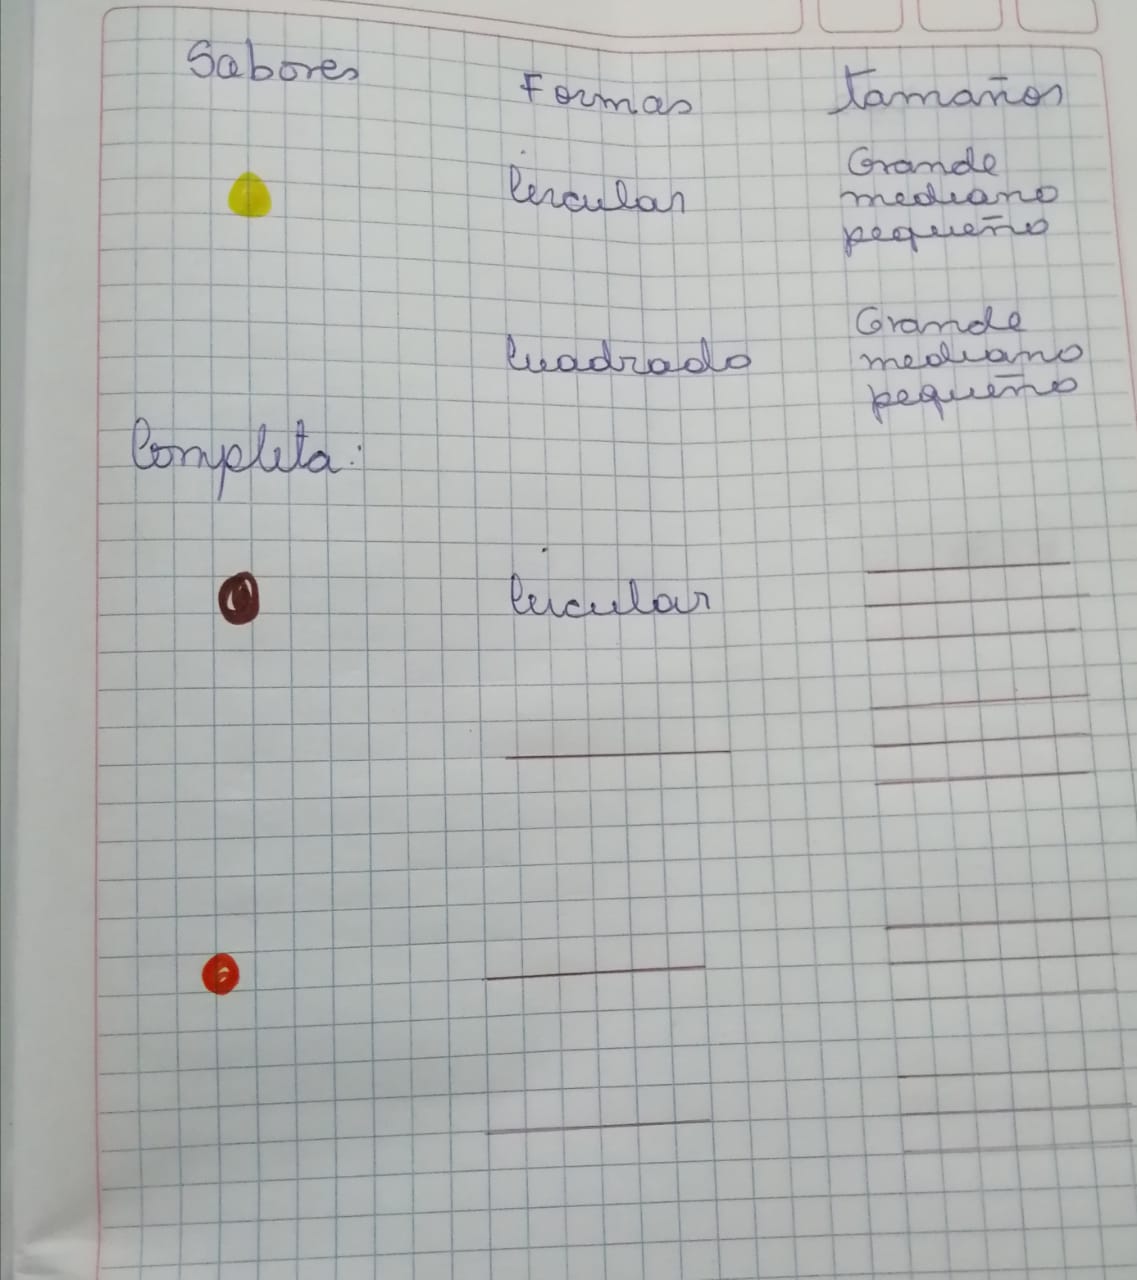 Sabores
Formas
tamaños
Circular
Grande
mediano
pequeño
Cuadrado
Grande
mediano
pequeño
Completa:
Circular